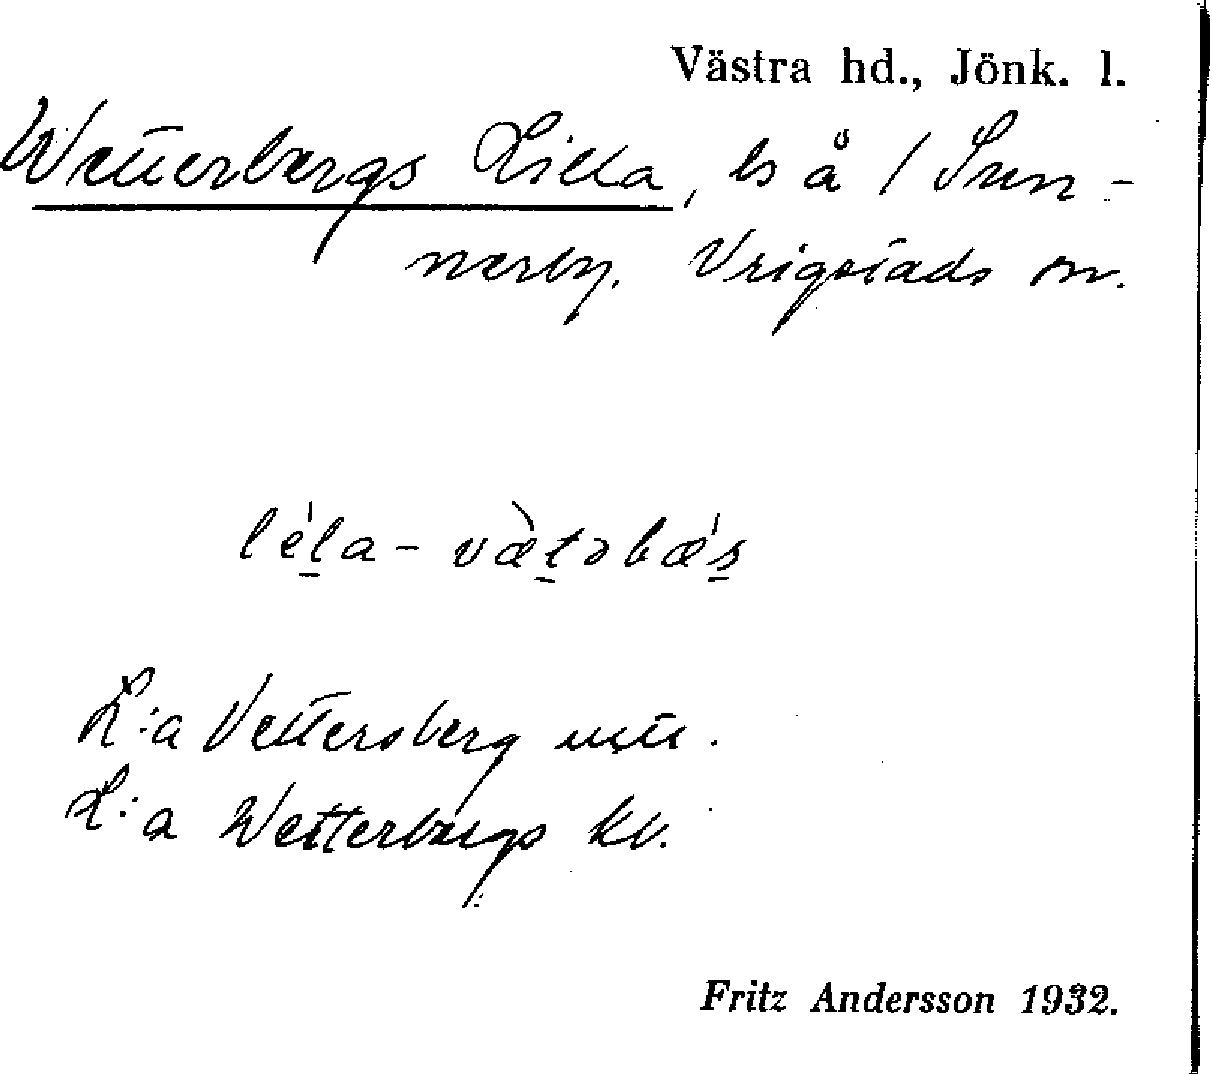 Västra hd., Jönk. l.
Wetterbergs Lilla, ls å 1 Sun-
nerby. Vrigstads sn.
L:a Vettersberg
L:a Wetterbergs kv.
Fritz Andersson 1932.